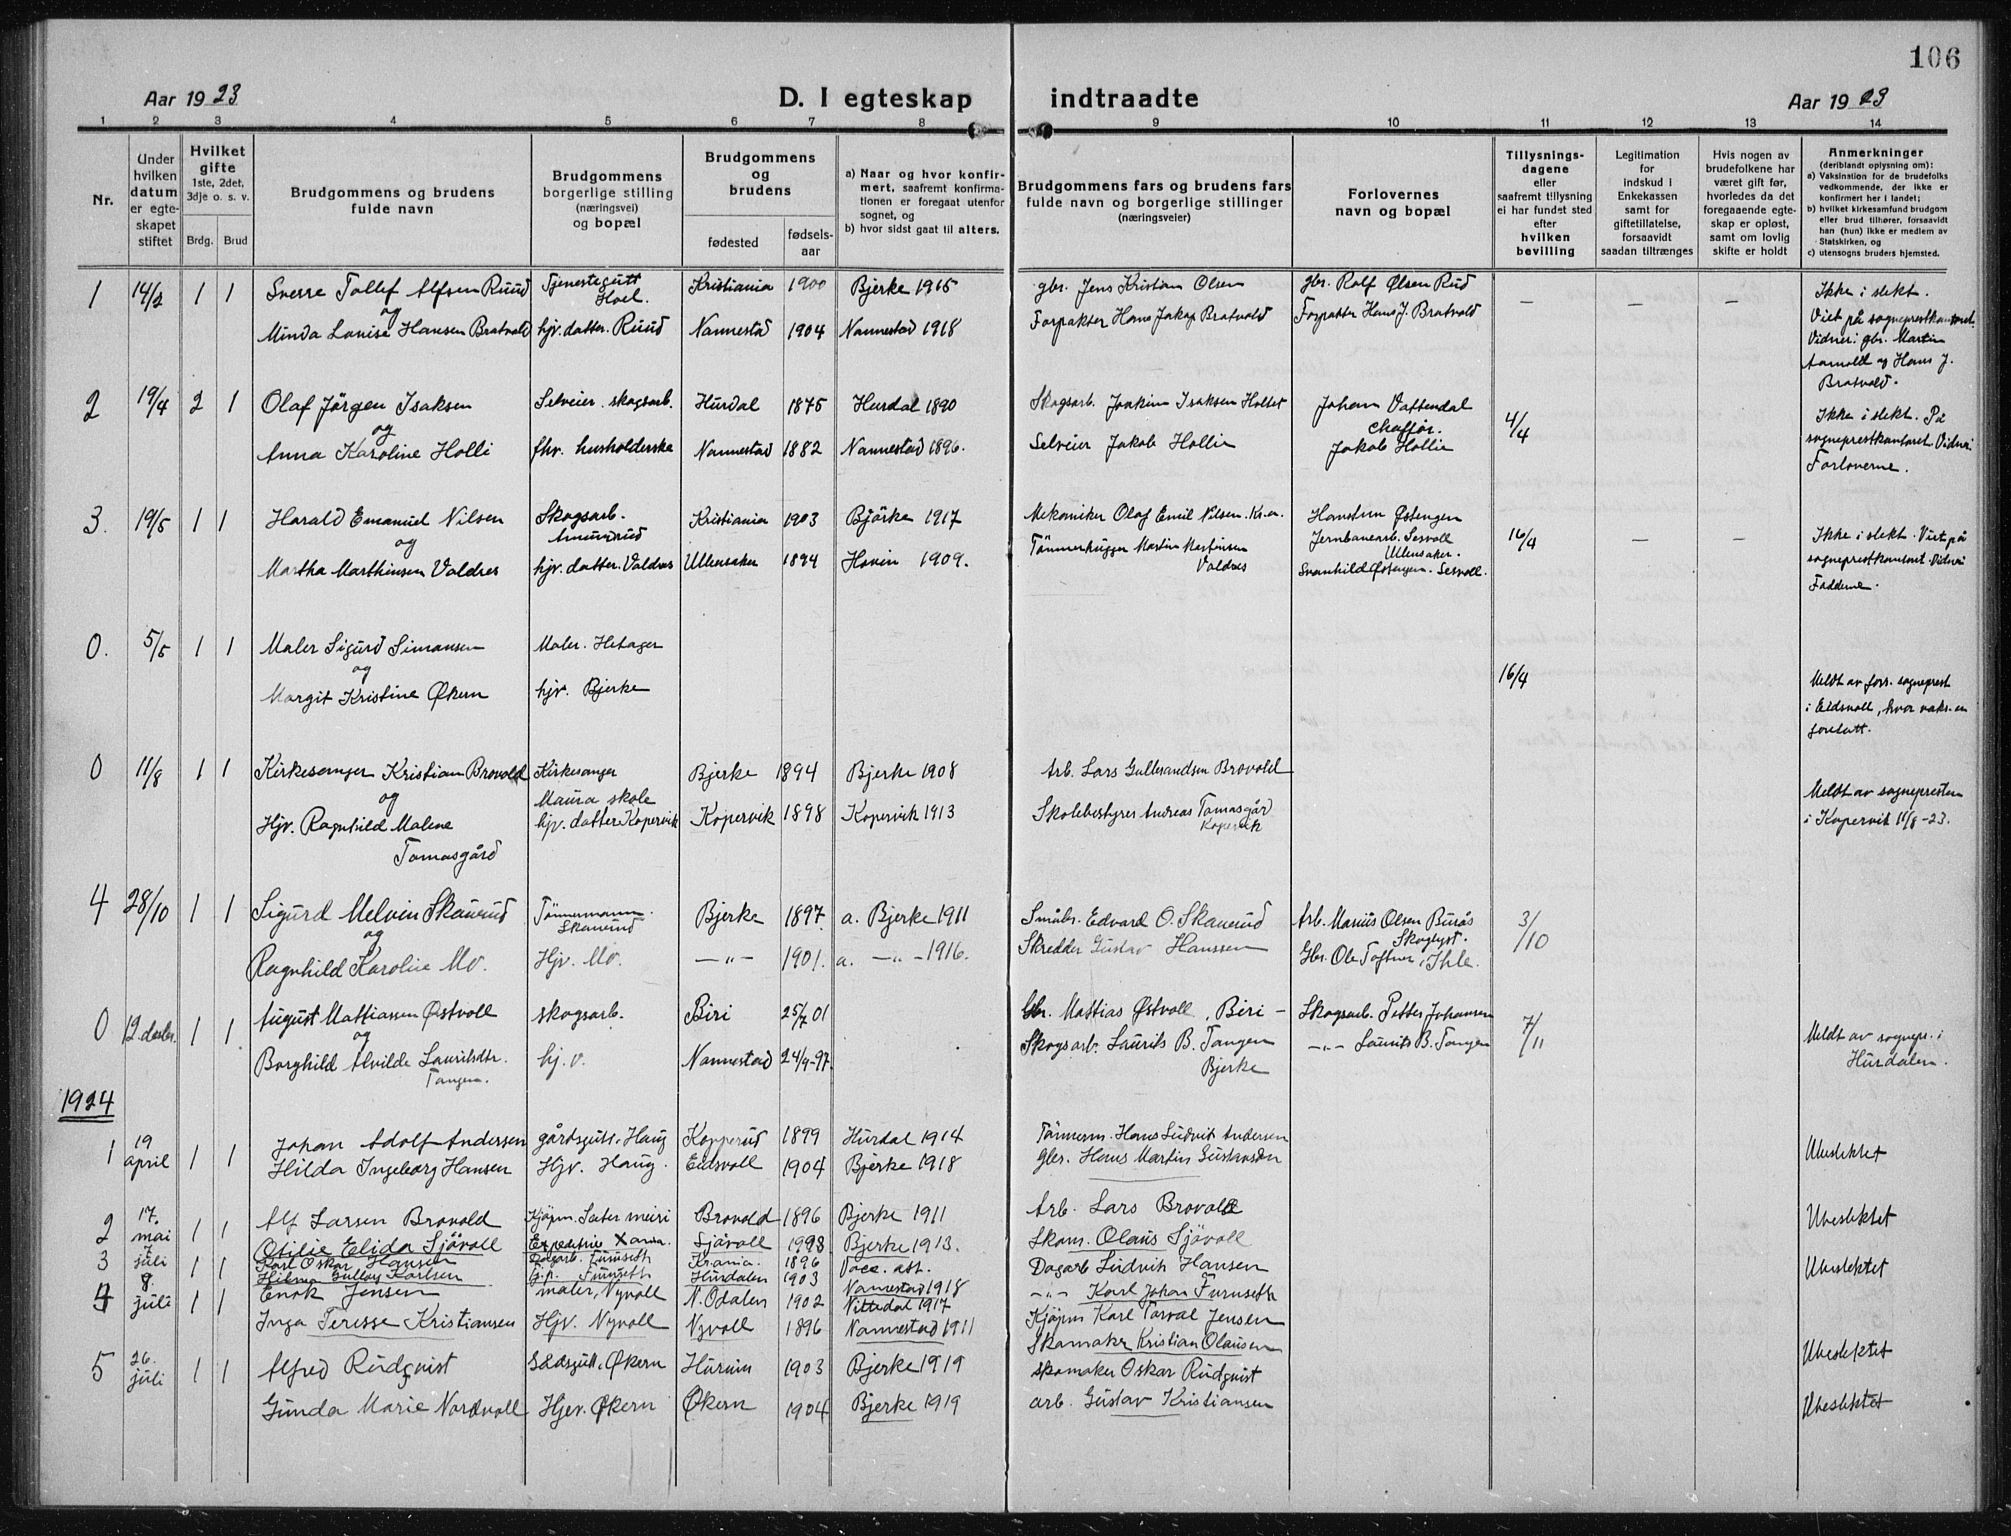 106
Aar 1923
D. I egteskap
indtraadte
Aar 1923
1 2 3 4 5 6 7 8 9 10 11 12 13 14
Nr.
Under hvilken datum er egteskapet stiftet
Hvilket gifte
1ste, 2det, 3dje o. s. v.
Brdg. Brud
Brudgommens og brudens fulde navn
Brudgommens og brudens borgerlige stilling (næringsvei) og bopæl
Brudgommens og brudens
fødested
fødselsaar
a) Naar og hvor konfirmert, saafremt konfirmationen er foregaat utenfor sognet, og
b) hvor sidst gaat til alters.
Brudgommens fars og brudens fars fulde navn og borgerlige stillinger (næringsveier)
Forlovernes navn og bopæl
Tillysningsdagene eller saafremt tillysning ei har fundet sted efter hvilken bevilling
Legitimation for indskud i Enkekassen samt for giftetillatelse, forsaavidt saadan tiltrænges
Hvis nogen av brudefolkene har været gift før, hvorledes da det foregaaende egteskap er opløst, samt om lovlig skifte er holdt
Anmerkninger
(deriblandt oplysning om):
a) Vaksination for de brudefolks vedkommende, der ikke er konfirmert her i landet;
b) hvilket kirkesamfund brudgom eller brud tilhører, forsaavidt han (hun) ikke er medlem av Statskirken, og
c) utensogns bruders hjemsted.
1 14/2 1 1 Sverre Tollef Alfsen Ruud Tjenestegutt Hoel. Kristiania 1900 Bjerke 1915 gbr. Jens Kristian Olsen gbr. Rolf Olsen Rud — — — Ikke i slekt.
og
Minda Lovise Hansen Bratvold hjv. datter. Ruud Nannestad 1904 Nannestad 1918 Forpakter Hans Jakop Bratvold Forpakter Hans J. Bratvold Viet på sogneprestkontoret. Vidner: gbr. Martin Aamold og Hans J. Bratvold.
2 19/4 2 1 Olaf Jörgen Isaksen Selveier. skogsarb. Hurdal 1875 Hurdal 1890 Skogsarb. Joakim Isaksen Holtet Johan Vattendal chaffør. 4/4 Ikke i slekt. På
og
Anna Karoline Holli fhv. husholderske Nannestad 1882 Nannestad 1896. Selveier Jakob Hollie Jakob Hollie sogneprestkontoret. Vidner: Forloverne.
3. 19/5 1 1 Harald Emanuel Nilsen Skogsarb. Amundrud Kristiania 1903 Björke 1917 Mekaniker Olaf Emil Nilsen. Kr.a. Hanstun Østengen Jernbanearb. Sesvoll Ullensaker. 16/4 — — Ikke i slekt. Viet på
og
Martha Marthinsen Valdres hjv. datter. Valdres Ullensaker 1894 Hovin 1909. Tömmerhugger Martin Martinsen Valdres Svanhild Østengen. Sesvoll. sogneprestkontoret. Vidner: Fadderne.
0. 5/5 1 1 Maler Sigurd Simonsen Maler. Hetager
og
Margit Kristine Økern hjv. Bjerke 16/4 Meldt av forr. sogneprest i Eidsvoll, hvor vaks.en foretatt.
0 11/8 1 1 Kirkesanger Kristian Brovold Kirkesanger Maura skole Bjerke 1894 Bjerke 1908 Arb. Lars Gulbrandsen Brovold
og
Hjv. Ragnhild Malene Tomasgård hjv. datter Kopervik Kopervik 1898 Kopervik 1913 Skolebestyrer Andreas Tomasgård Kopervik Meldt av sognepresten i Kopervik 11/8-23.
4 28/10 1 1 Sigurd Melvin Skaurud Tömmermann. Skaurud Bjerke 1897. a. Bjerke 1911 Småbr. Edvard O. Skaurud Arb. Marius Olsen Burås Skoglyst. 3/10
og
Ragnhild Karoline Mo. Hjv. Mo. —"— 1901. a. —"— 1916. Skredder Gustav Hanssen Gbr. Ole Toftner, Ihle.
0 12. desbr. 1 1 August Mattiassen Østvoll skogsarb. Biri 25/7 01 Gbr. Mattias Østvoll, Biri — Skogsarb. Petter Johansen 7/11 Meldt av sognepr. i Hurdalen.
og
Borghild Alvilde Lauritsdtr. Tangen. hj. v. Nannestad 24/9-97. Skogsarb. Laurits B. Tangen Bjerke —"— Laurits B. Tangen
1924
1 19 april 1 1 Johan Adolf Andersen gårdsgutt. Haug Kopperud 1899 Hurdal 1914 Tömmerm. Hans Ludvik Andersen
Hilda Ingeborg Hansen Hjv. Haug. Eidsvoll 1904 Bjerke 1918 gbr. Hans Martin Gustavsen Ubeslektet
2 17. mai 1 1 Alf Larsen Brovold Kjöpm. Sæter meieri Brovold 1896 Bjerke 1911 Arb. Lars Brovold Ubeslektet
Otilie Elida Sjövoll Expeditrise Xania. Sjövoll 1898 Bjerke 1913. Skom. Olaus Sjövoll
3 juli 1 1 Karl Oskar Hansen Dagarb. Furuseth Kr.ania. 1896 Vace. att. Dagarb. Ludvik Hansen Ubeslektet
Hilma Karlsen Furuseth Hurdalen 1903 Nannestad 1918 —"— Karl Johan Furuseth
4 8 juli 1 1 Enok Jensen maler, Nyvoll N. Odalen 1902 Nittedal 1917 Kjöpm Karl Torval Jensen
Inga Teresse Kristiansen Hjv. Nyvoll Nyvoll 1896 Nannestad 1911 Skomaker Kristian Olausen Ubeslektet
5 26. juli 1 1 Alfred Rudqvist Økern Hurum 1903 Bjerke 1919 skomaker Oskar Rudqvist
Gunda Marie Nordvoll Hjev. Økern Økern 1904 Bjerke 1919 arb. Gustav Kristiansen Ubeslektet